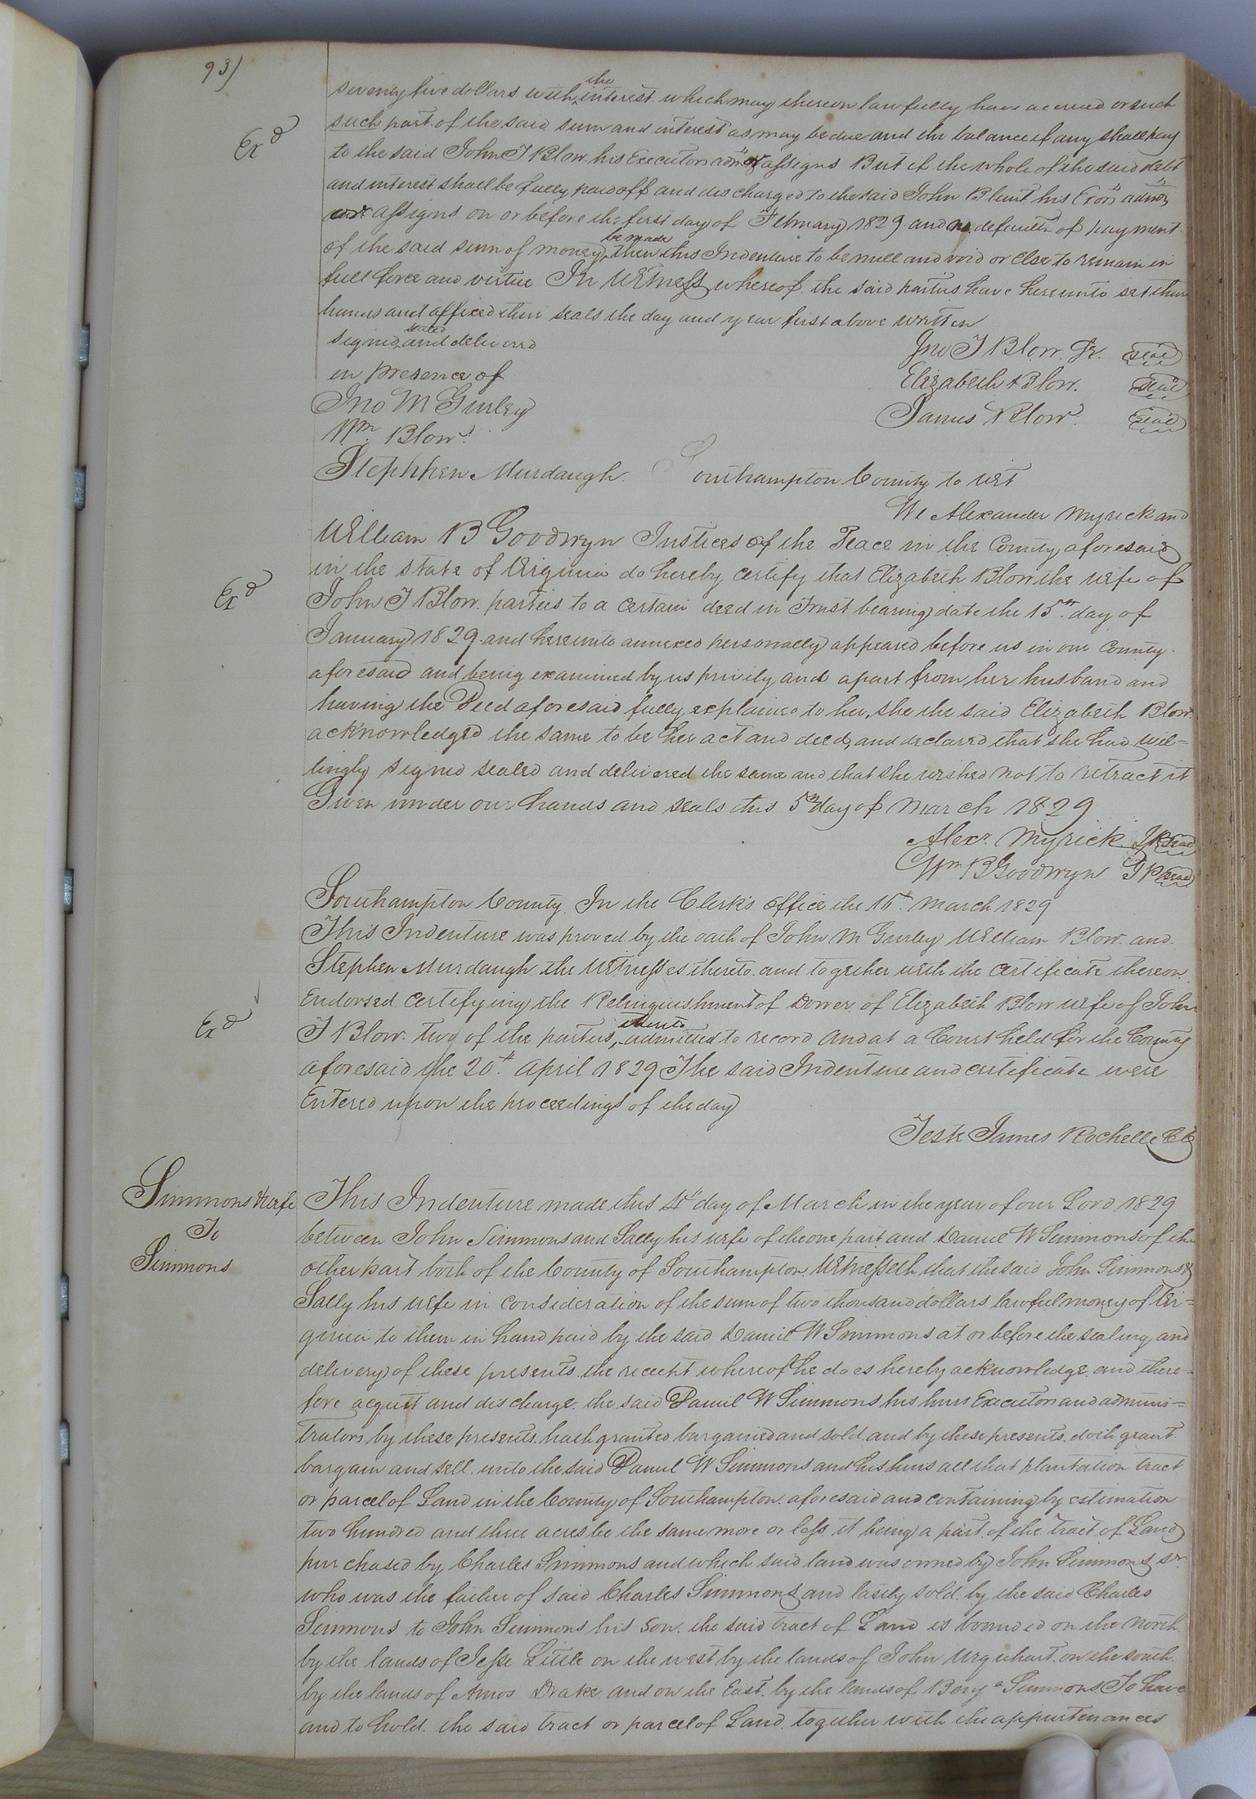 93)
seventy five dollars with the interest which may thereon lawfully have accrued or such
Exd
such part of the said sum and interest as may be due and the balance if any shall pay
to the said John T Blow his Executors admrs or assigns But if the whole of the said debt
and interest shall be fully paid off and discharged to the said John Blunt his Exors admrs
or assigns on or before the first day of February 1829 and no default of payment
of the said sum of money be made then this Indenture to be null and void or else to remain in
full force and virtue In Witness whereof the said parties have hereunto set their
hands and affixed their seals the day and year first above written
Signed sealed and delivered
in presence of
Jno T Blow Jr. seal
Elizabeth Blow. seal
Jno M Gurley
James Blow seal
Wm Blow
Stephhen Murdaugh.
Southampton County to wit
We Alexander Myrick and
William B Goodwyn Justices of the Peace in the County aforesaid
in the State of Virginia do hereby certify that Elizabeth Blow the wife of
Exd
John T Blow parties to a certain deed in Trust bearing date the 15th day of
January 1829 and hereunto annexed personally appeared before us in our County
aforesaid and being examined by us privily and apart from her husband and
having the Deed aforesaid fully explained to her, she the said Elizabeth Blow
acknowledged the same to be her act and deed, and declared that she had wil=
lingly signed sealed and delivered the same and that she wished not to retract it
Given under our hands and seals this 5th day of March 1829
Alexr. Myrick JP seal
Wm B Goodwyn JP seal
Southampton County In the Clerk's office the 16th March 1829
This Indenture was proved by the oath of John M Gurley William Blow and
Stephen Murdaugh the Witnesses thereto and together with the certificate thereon
Endorsed certifying the Relinquishment of Dower of Elizabeth Blow wife of John
Exd
T Blow two of the parties thereto admitted to record And at a Court held for the County
aforesaid the 20th April 1829 The said Indenture and certificate were
Entered upon the proceedings of the day
Teste James Rochelle CC
Simmons & wife
To
Simmons
This Indenture made this 4th day of March in the year of our Lord 1829
between John Simmons and Sally his wife of the one part and Daniel W Simmons of the
other part both of the County of Southampton Witnesseth that the said John Simmons &
Sally his wife in consideration of the sum of two thousand dollars lawful money of Vir=
ginia to them in hand paid by the said Daniel W Simmons at or before the sealing and
delivery of these presents the receipt whereof he does hereby acknowledge and there=
fore acquit and discharge the said Daniel W Simmons his heirs Executors and adminis=
trators by these presents hath granted bargained and sold and by these presents doth grant
bargain and sell unto the said Daniel W Simmons and his heirs all that plantation tract
or parcel of Land in the County of Southampton aforesaid and containing by estimation
two hundred and three acres be the same more or less it being a part of the tract of Land
purchased by Charles Simmons and which said land was owned by John Simmons sr
who was the father of said Charles Simmons and lastly sold by the said Charles
Simmons to John Simmons his son. the said tract of Land is bounded on the North
by the lands of Jesse Little on the west by the lands of John Urquhart on the south
by the lands of Amos Drake and on the East by the lands of Benja Simmons To have
and to hold the said tract or parcel of Land together with the appurtenances